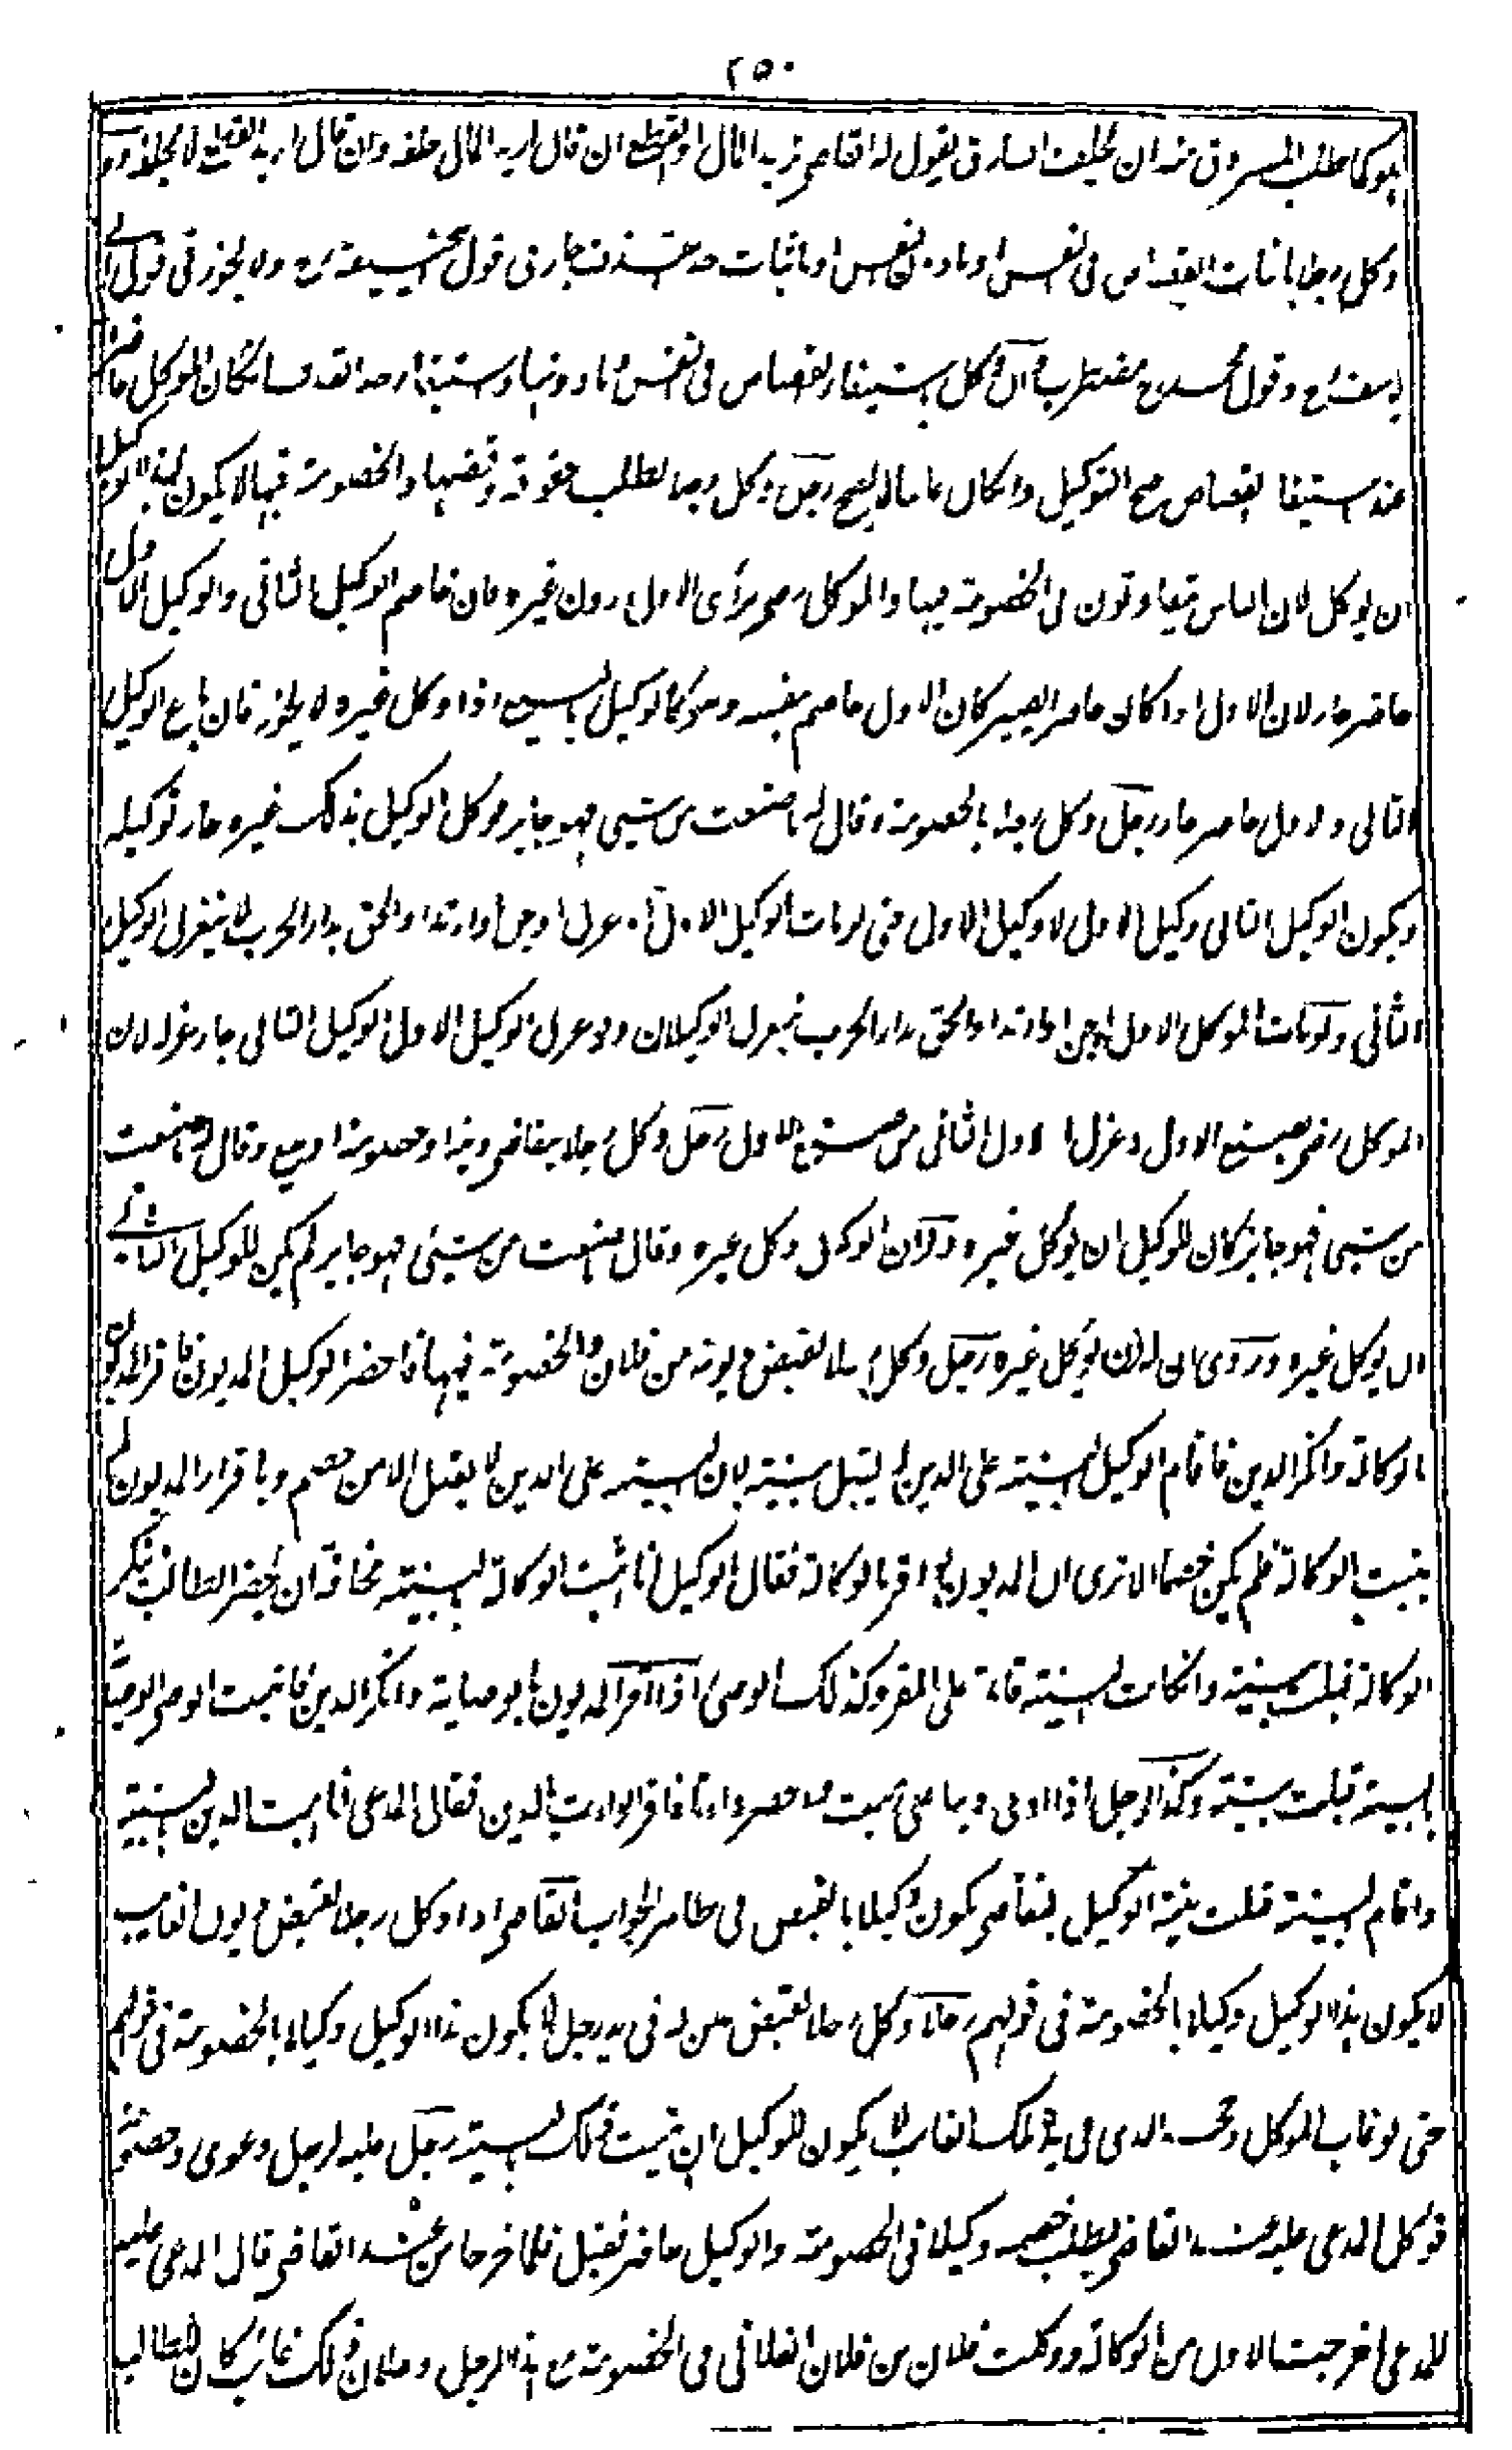 ٢٥٠
هو كما طلب المسروق منه ان يحلف السارق يقول له القاضي تريد المال او القطع ان قال اريد المال حلفه وان قال اريد القطع لا يحلفه
وكل رجلا باثبات القصاص في نفس او ما دون النفس او باثبات حد قذف جاز في قول ابي حنيفة رح ولا يجوز في قول ابي
يوسف رح وقول محمد رح مضطرب وان وكل باستيفاء القصاص في نفس وما دونها او استيفاء حد القذف ان كان الموكل حاضرا
عند استيفاء القصاص صح التوكيل وان كان غائبا لا يصح رجل وكل رجلا لطلب حقوقه وقبضها والخصومة فيها لا يكون لهذا الوكيل
ان يوكل لان الناس يتفاوتون في الخصومة فيها والموكل رضي برأى الاول دون غيره فان خاصم الوكيل الثاني والوكيل الاول
حاضر جاز لان الاول اذا كان حاضرا يصير كان الاول خاصم بنفسه وهو كالوكيل بالبيع اذا وكل غيره لا يجوز فان باع الوكيل
الثاني والاول حاضر جاز رجل وكل رجلا بالخصومة وقال له ما صنعت من شيئ فهو جايز فوكل الوكيل بذلك غيره جاز توكيله
ويكون الوكيل الثاني وكيل الاول لا وكيل الوكيل الاول حتى لو مات الوكيل الاول او عزل او جن او ارتد او لحق بدار الحرب لا ينعزل الوكيل
الثاني ولو مات الموكل الاول او جن او ارتد او لحق بدار الحرب ينعزل الوكيلان ولو عزل الوكيل الاول الوكيل الثاني جاز عزله لان
الموكل رضي بصنيع الاول وعزل الاول الثاني من صنيع الاول رجل وكل رجلا بتقاضي دينه او خصومة او بيع وقال ما صنعت
من شيئ فهو جايز كان للوكيل ان يوكل غيره ولو ان الوكيل وكل غيره وقال ما صنعت من شيئ فهو جايز لم يكن للوكيل الثاني
ان يوكل غيره وروى ان له ان يوكل غيره رجل وكل رجلا بقبض ديونه من فلان والخصومة فيها فاحضر الوكيل المديون فاقر المديون
بالوكالة وانكر الدين فاقام الوكيل البينة على الدين لا يقبل بينته لان البينة على الدين لا يقبل الا من خصم وباقرار المديون لم
يثبت الوكالة فلم يكن خصما الا ترى ان المديون لو اقر بالوكالة فقال الوكيل انا اثبت الوكالة بالبينة مخافة ان يحضر الطالب وينكر
الوكالة قبلت بينته وان كانت البينة قامت على المقر وكذلك الوصي اذا اقر المديون بالوصاية وانكر الدين فاثبت الوصي الوصاية
بالبينة قبلت بينته وكذا الرجل اذا ادعى دينا على ميت فاحضر وارثا فاقر الوارث بالدين فقال المدعي انا اثبت الدين بالبينة
واقام البينة قبلت بينته الوكيل بالتقاضي يكون وكيلا بالقبض في ظاهر الجواب القاضي اذا وكل رجلا بقبض ديون الغايب
لا يكون هذا الوكيل وكيلا بالخصومة في قولهم رجل وكل رجلا بقبض عين له في يد رجل لا يكون هذا الوكيل وكيلا بالخصومة في قولهم
حتى لو غاب الموكل وجحد الذي في يده ملك الغايب لا يكون للوكيل ان يثبت ذلك بالبينة رجل عليه لرجل دعوى وخصومة
فوكل المدعى عليه عند القاضي بطلب خصمه وكيلا في الخصومة والوكيل حاضر فقبل فلما خرجا من عند القاضي قال المدعى عليه
للمدعي اخرجت الاول من الوكالة ووكلت فلان بن فلان الفلاني في الخصومة مع هذا الرجل وفلان ذلك غائب كان للطالب